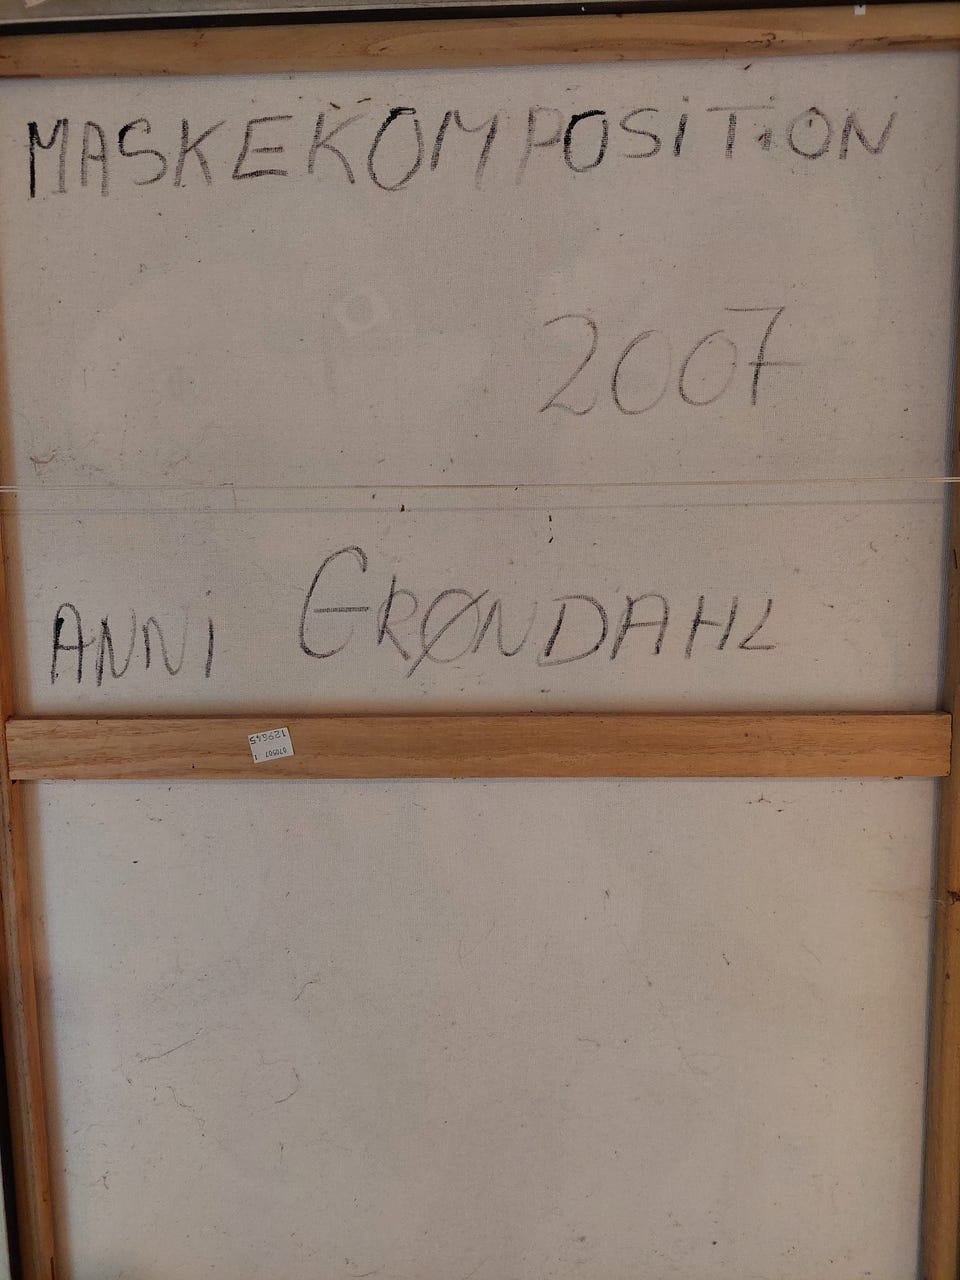 MASKEKOMPOSITION
2007
ANNI GRØNDAHL
129645
070507 1